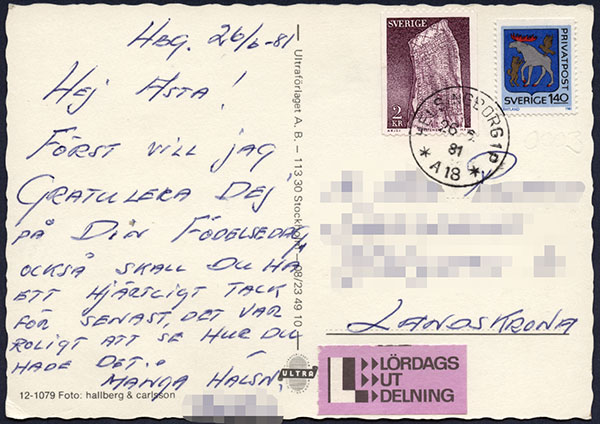 Hbg. 26/6-81
Hej Asta!
Först vill jag
gratulera Dej
på Din födelsedag,
också skall Du ha
ett hjärtligt tack
för senast, det var
roligt att se hur Du
hade det.
Många hälsn
12-1079 Foto: hallberg & carlsson
Ultraförlaget A. B. – 113 30 Stockholm – 08/23 49 10
ULTRA
SVERIGE
2
KR
PRIVATPOST
SVERIGE 140
HELSINGBORG 1
26-6
81
* A18 *
Landskrona
LÖRDAGS
UT
DELNING